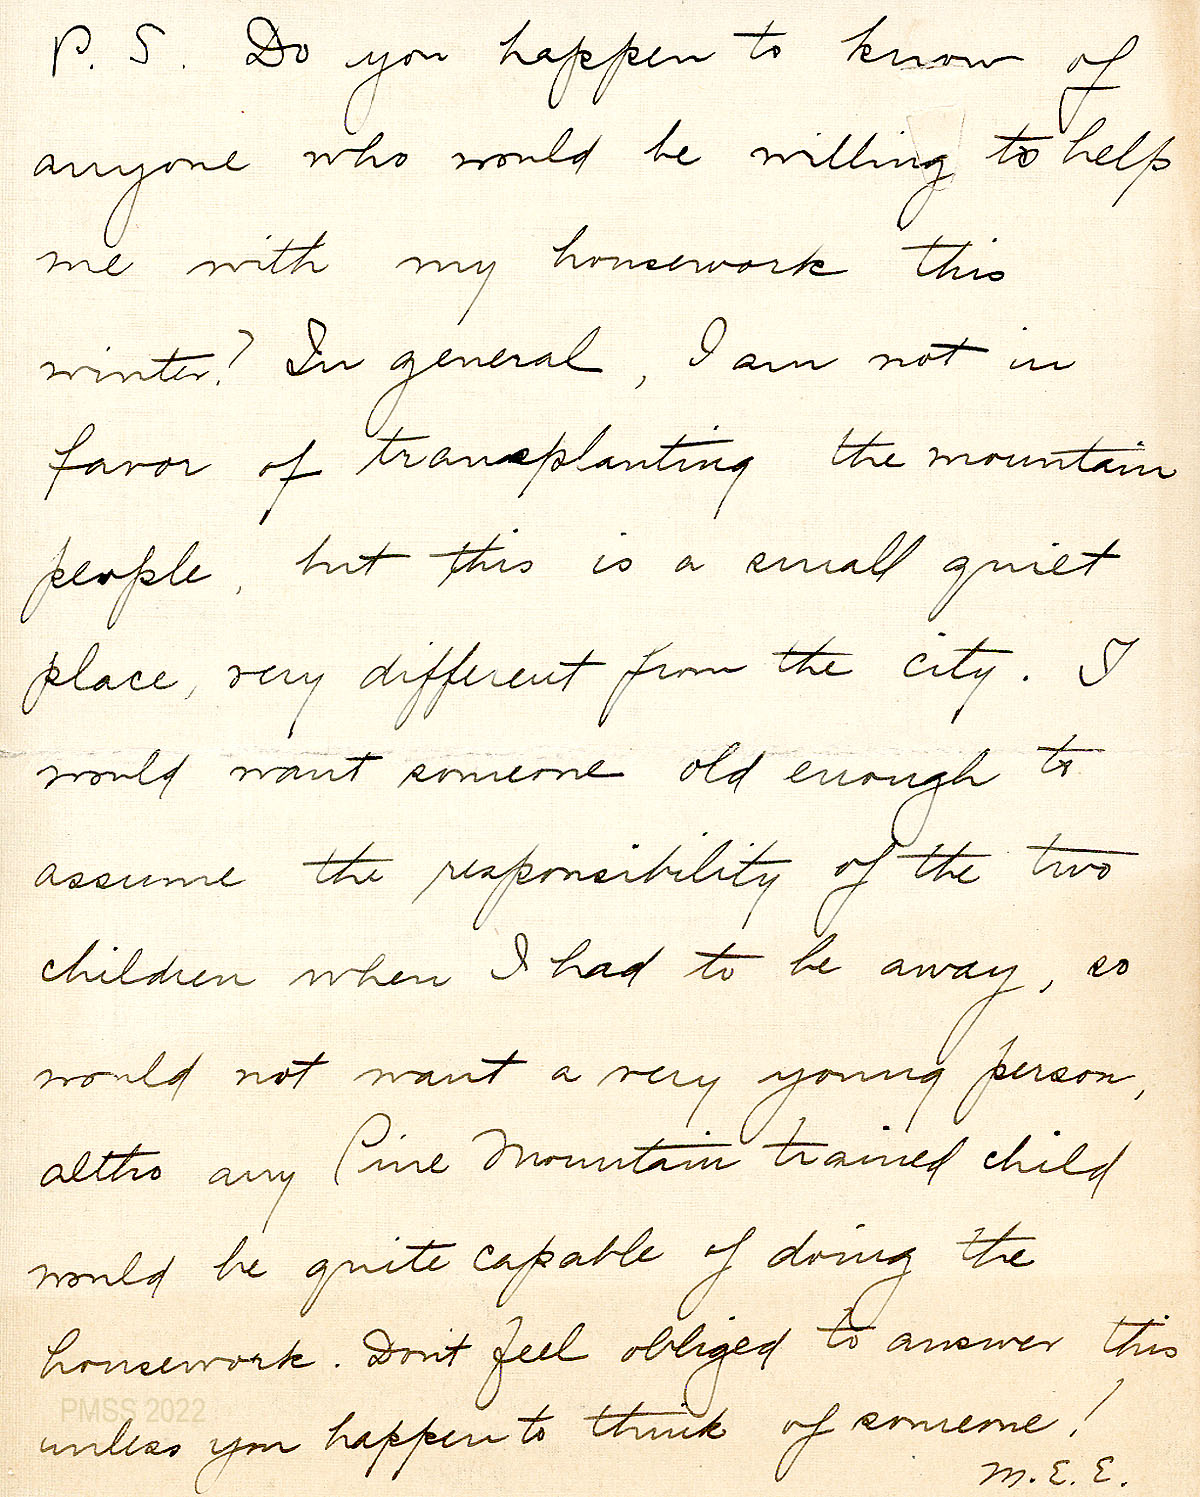 P. S. Do you happen to know of
anyone who would be willing to help
me with my housework this
winter? In general, I am not in
favor of transplanting the mountain
people, but this is a small quiet
place, very different from the city. I
would want someone old enough to
assume the responsibility of the two
children when I had to be away, so
would not want a very young person,
altho any Pine Mountain trained child
would be quite capable of doing the
housework. Dont feel obliged to answer this
PMSS 2022
unless you happen to think of someone!
M. E. E.